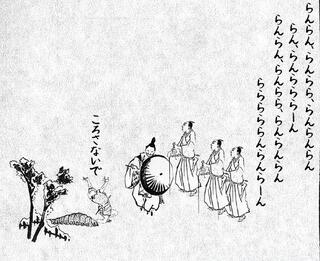 らんらん、らんらら、らんらんらん
らん、らんらららーん
らんらん、らんらら、らんらんらん
ららら・ららんらんらーん
ころさないで